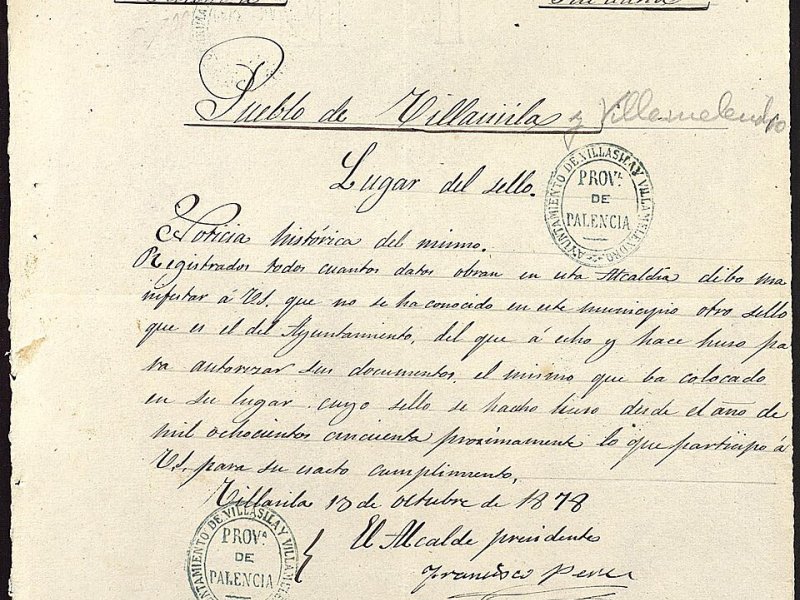 Pueblo de Villasila y Villamelendro
Lugar del sello.
AYUNTAMIENTO DE VILLASILA Y VILLAMELENDRO.
PROV.ª
DE
PALENCIA
Noticia histórica del mismo.
Registrados todos cuantos datos obran en esta Alcaldía debo ma
nifestar á V.S. que no se ha conocido en este municipio otro sello
que es el del Ayuntamiento, del que á echo y hace huso pa
ra autorizar sus documentos, el mismo que ba colocado
en su lugar cuyo sello se hacho huso desde el año de
mil ochocientos cincuenta proximamente lo que participo á
V.S. para su esacto cumplimiento.
Villasila 13 de Octubre de 1878
El Alcalde presidente
Francisco Perez
AYUNTAMIENTO DE VILLASILA Y VILLAMELE
PROV.ª
DE
PALENCIA